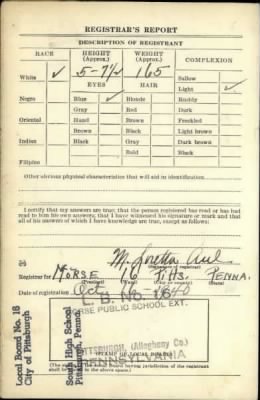 REGISTRAR'S REPORT
DESCRIPTION OF REGISTRANT
RACE HEIGHT (Approx.) WEIGHT (Approx.) COMPLEXION
White ✓ 5-7½ 165 Sallow
EYES HAIR Light ✓
Negro Blue ✓ Blonde Ruddy
Gray Red Dark
Oriental Hazel Brown Freckled
Brown Black Light brown
Indian Black Gray Dark brown
Bald Black
Filipino
Other obvious physical characteristics that will aid in identification
I certify that my answers are true; that the person registered has read or has had
read to him his own answers; that I have witnessed his signature or mark and that
all of his answers of which I have knowledge are true, except as follows:
M. Loretta
(Signature of registrar)
Registrar for MORSE 16 PENNA.
(Precinct) (Ward) (City or county) (State)
Date of registration Oct 16 - 1940
L. B. No. 18
MORSE PUBLIC SCHOOL EXT.
PITTSBURGH, (Allegheny Co.)
PENNSYLVANIA
(STAMP OF LOCAL BOARD)
shall be placed in the above space.)
Local Board No. 18
City of Pittsburgh
South High School
Pittsburgh, Penna.